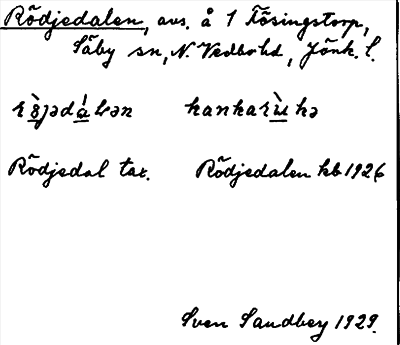 Rödjedalen, avs. å 1 Tösingstorp,
Säby sn, N. Vedbo hd, Jönk. l.
kankarùkə
Rödjedal tax. Rödjedalen kb 1926
Sven Sandbey 1929.